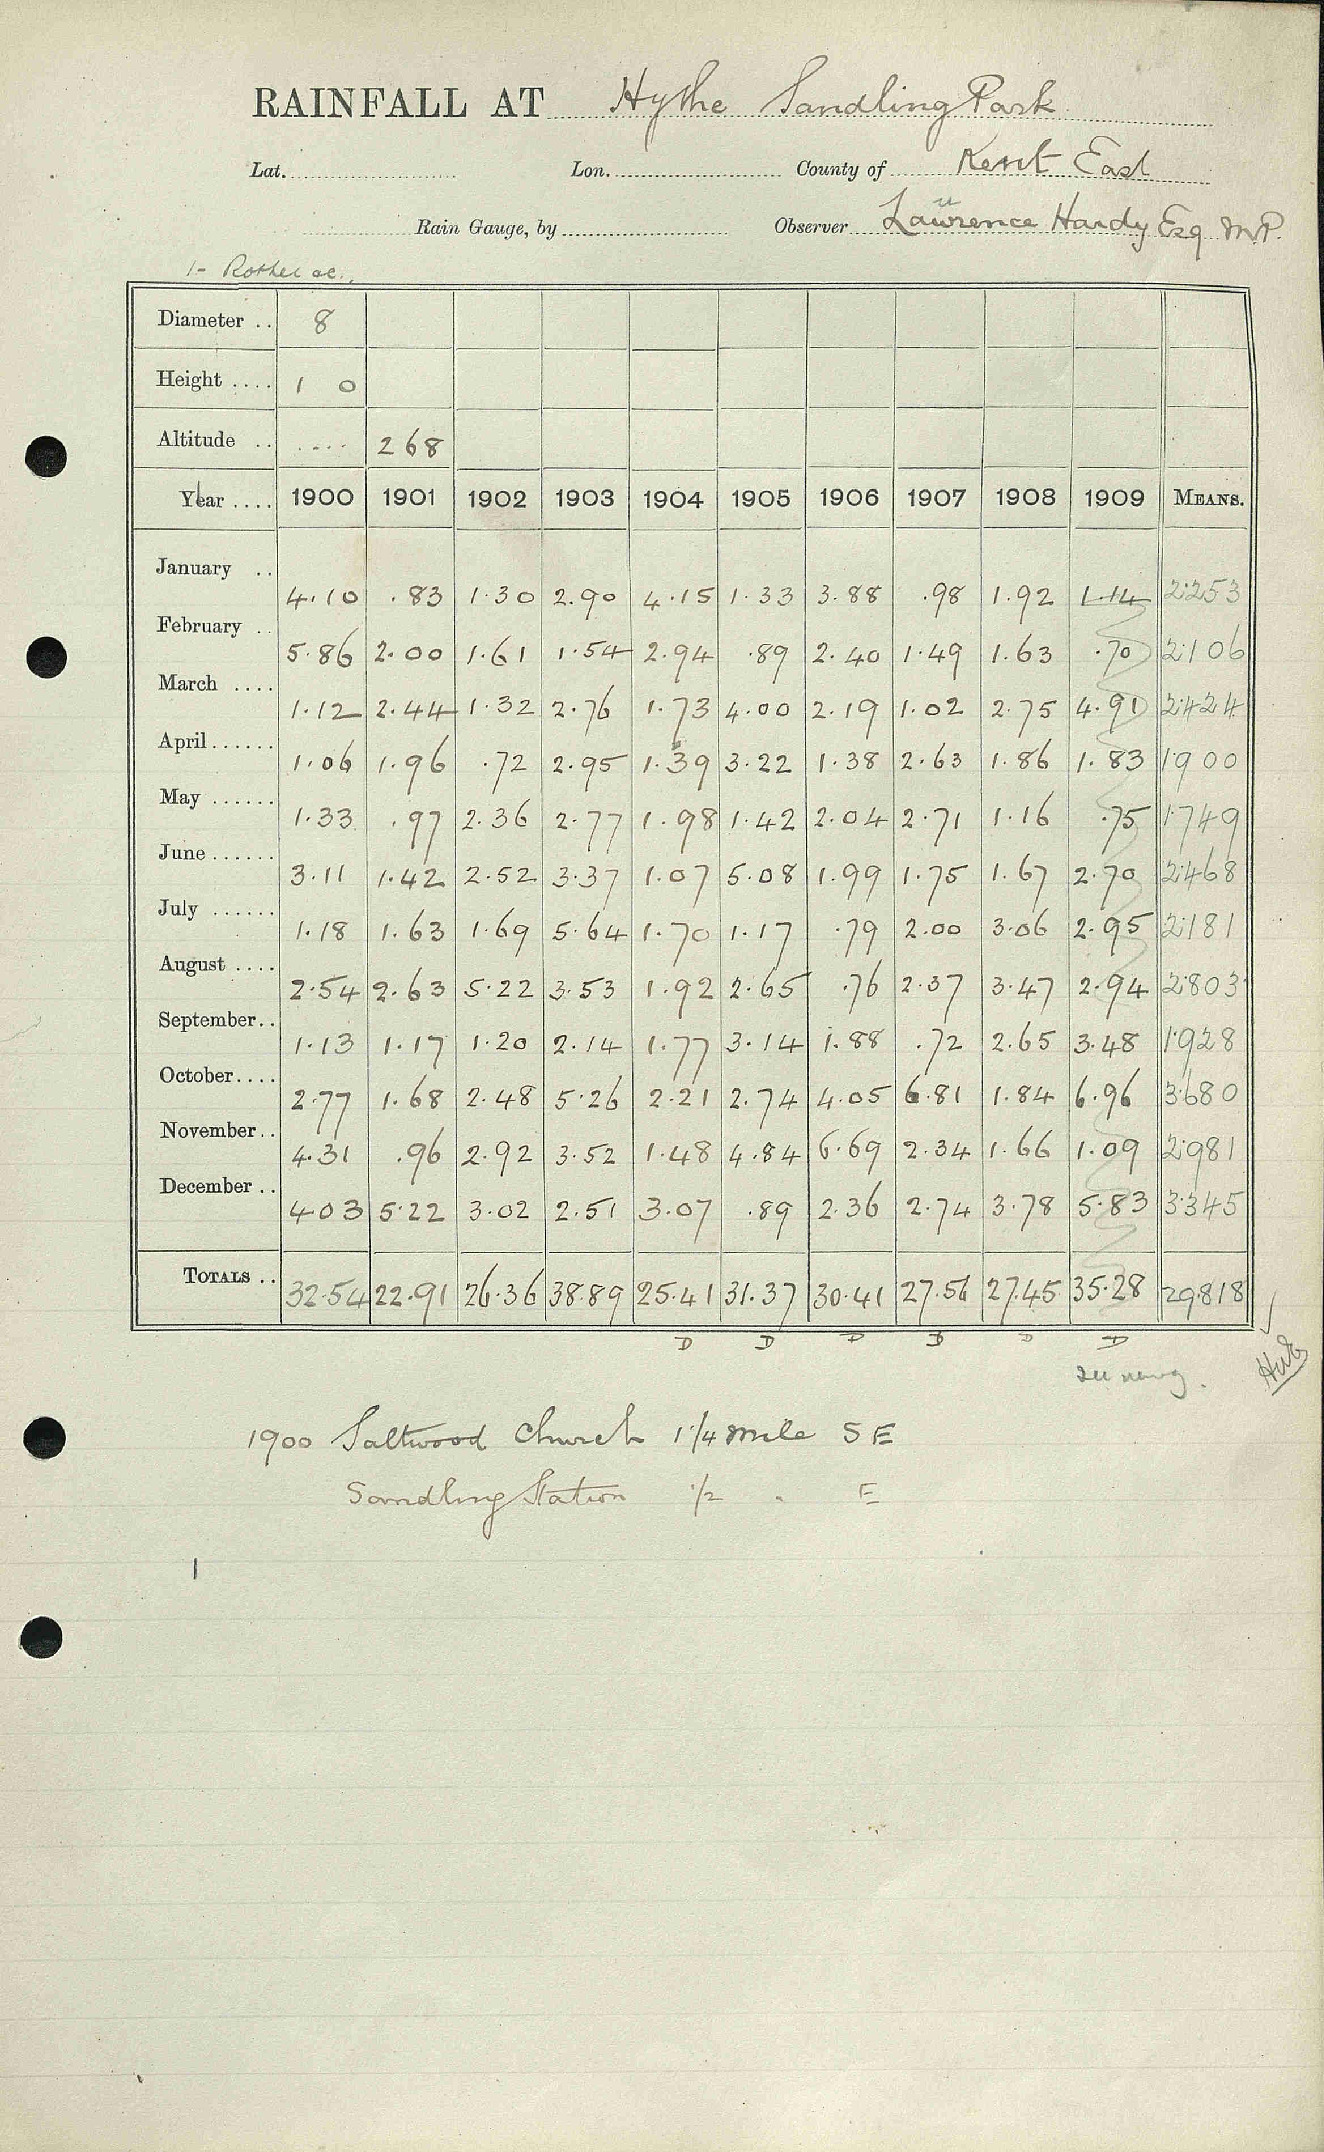 RAINFALL AT Hythe Sandling Park
Lat. Lon. County of Kent East
Rain Gauge, by Observer Lawrence Hardy Esq M.P.
1- Rother &c.
Diameter .. 8
Height .... 1 0
Altitude .. .... 268
Year .... 1900 1901 1902 1903 1904 1905 1906 1907 1908 1909 MEANS.
January .. 4.10 .83 1.30 2.90 4.15 1.33 3.88 .98 1.92 1.14 2.253
February .. 5.86 2.00 1.61 1.54 2.94 .89 2.40 1.49 1.63 .70 2.106
March .... 1.12 2.44 1.32 2.76 1.73 4.00 2.19 1.02 2.75 4.91 2.424
April...... 1.06 1.96 .72 2.95 1.39 3.22 1.38 2.63 1.86 1.83 1.900
May ...... 1.33 .97 2.36 2.77 1.98 1.42 2.04 2.71 1.16 .75 1.749
June...... 3.11 1.42 2.52 3.37 1.07 5.08 1.99 1.75 1.67 2.70 2.468
July ...... 1.18 1.63 1.69 5.64 1.70 1.17 .79 2.00 3.06 2.95 2.181
August .... 2.54 2.63 5.22 3.53 1.92 2.65 .76 2.37 3.47 2.94 2.803
September.. 1.13 1.17 1.20 2.14 1.77 3.14 1.88 .72 2.65 3.48 1.928
October.... 2.77 1.68 2.48 5.26 2.21 2.74 4.05 6.81 1.84 6.96 3.680
November.. 4.31 .96 2.92 3.52 1.48 4.84 6.69 2.34 1.66 1.09 2.981
December .. 4.03 5.22 3.02 2.51 3.07 .89 2.36 2.74 3.78 5.83 3.345
TOTALS .. 32.54 22.91 26.36 38.89 25.41 31.37 30.41 27.56 27.45 35.28 29.818
D D D D D D
1900 Saltwood Church 1 1/4 mile S E
Sandling Station 1/2 " E